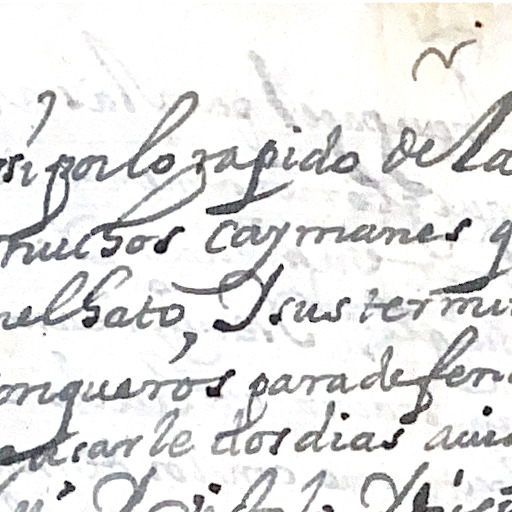 si por lo rapido de la
muchos caymanes q
el hato, Y sus termi
onqueros para defen
ensarle dos dias aui